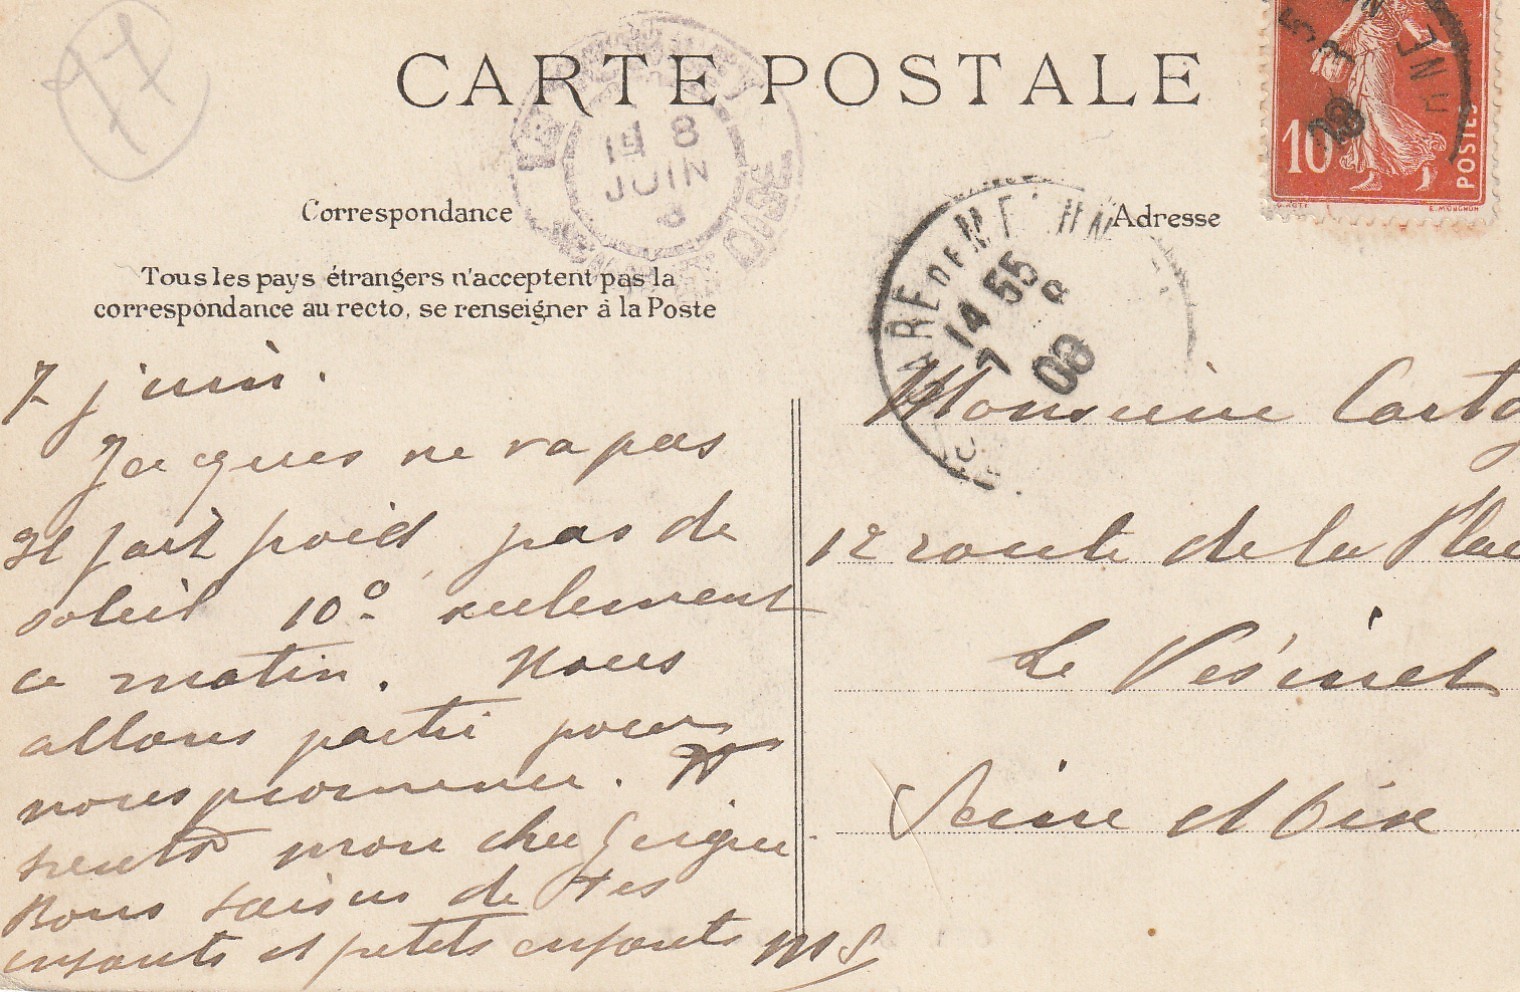 77
CARTE POSTALE
18
JUIN
8
OISE
10
POSTES
E. MOUCHON
Correspondance
Adresse
GARE DE ME UN
14 55
7 8
08
Tous les pays étrangers n'acceptent pas la
correspondance au recto, se renseigner à la Poste
7 juin.
Jacques ne va pas
Il fait froid, pas de
soleil 10° seulement
ce matin. Nous
allons partir pour
nous promener.
mon cher
Bons baisers de tes
enfants et petits enfants MS
Monsieur Carto
12 route de la Plac
Le Vésinet
Seine et Oise